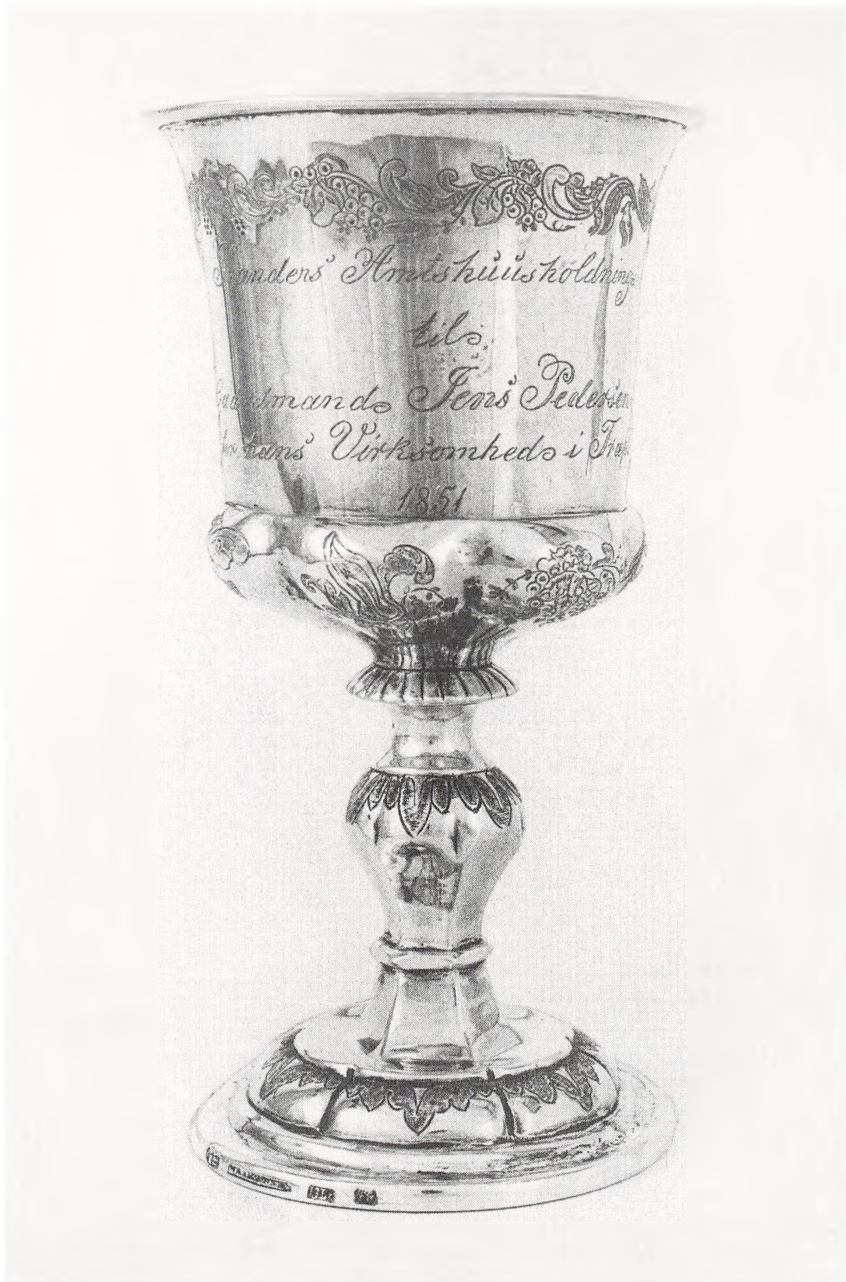 Randers Amtshuusholdnings
til
Gaardmand Jens Pedersen
for hans Virksomhed i
1851